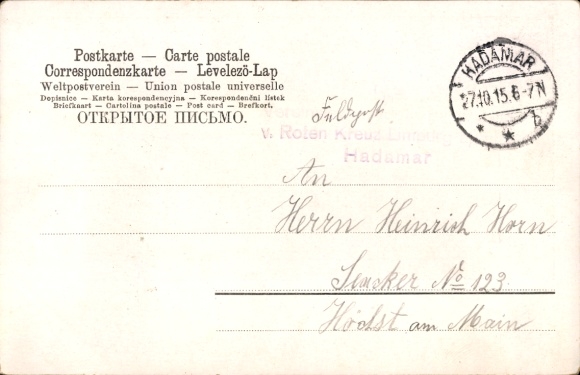 Postkarte — Carte postale
Correspondenzkarte — Levelező-Lap
Weltpostverein — Union postale universelle
Dopisnice — Karta korespondencyjna — Korespondenční lístek
Briefkaart — Cartolina postale — Post card — Brefkort.
ОТКРЫТОЕ ПИСЬМО.
HADAMAR
27.10.15.6-7N
b
Feldpost.
v. Roten Kreuz
Hadamar
An
Herrn Heinrich Horn
No 123
Höchst am Main